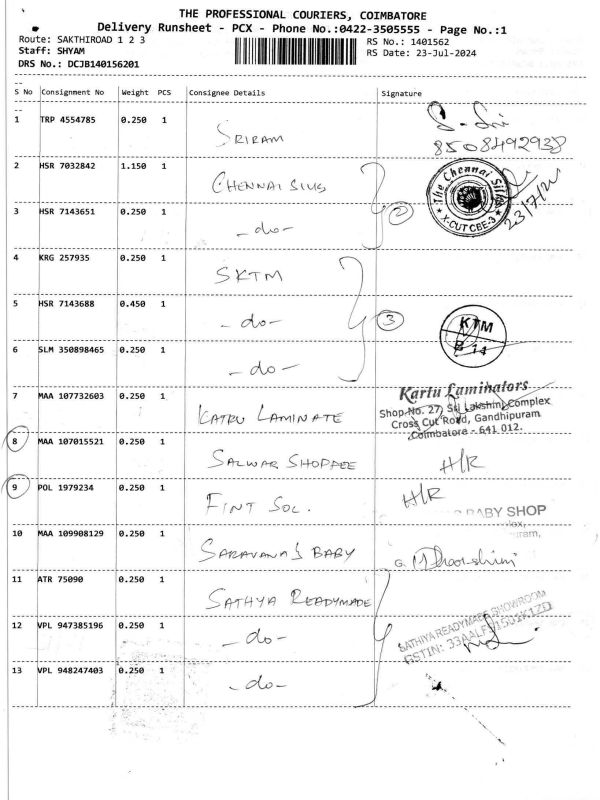 THE PROFESSIONAL COURIERS, COIMBATORE
Delivery Runsheet - PCX - Phone No.:0422-3505555 - Page No.:1
Route: SAKTHIROAD 1 2 3
RS No.: 1401562
Staff: SHYAM
RS Date: 23-Jul-2024
DRS No.: DCJB140156201
S No Consignment No Weight PCS Consignee Details Signature
1 TRP 4554785 0.250 1 SRIRAM S-Sri
8508492938
2 HSR 7032842 1.150 1 CHENNAI SILKS The Chennai Silks
X-CUT CBE-3
23/7/24
3 HSR 7143651 0.250 1 -do- 2
4 KRG 257935 0.250 1 SKTM
5 HSR 7143688 0.450 1 -do- 3 KTM
B 14
6 SLM 350898465 0.250 1 -do-
7 MAA 107732603 0.250 1 KATRU LAMINATE Kartu Laminators
Shop No. 27, Sri Lakshmi Complex
Cross Cut Road, Gandhipuram
Coimbatore - 641 012.
8 MAA 107015521 0.250 1 SALWAR SHOPPEE H/R
9 POL 1979234 0.250 1 FINT SOL. H/R
BABY SHOP
10 MAA 109908129 0.250 1 SARAVANA'S BABY
11 ATR 75090 0.250 1 SATHYA READYMADE SATHIYA READYMADE SHOWROOM
12 VPL 947385196 0.250 1 -do-
13 VPL 948247403 0.250 1 -do-